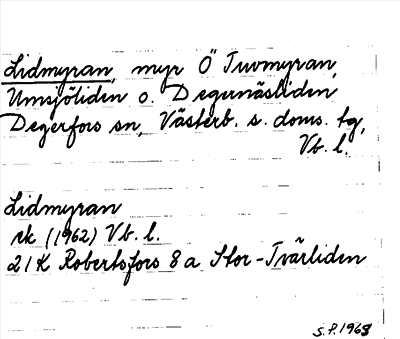 Lidmyran, myr Ö Tuvmyran,
Umsjöliden o. Degernäsliden
Degerfors sn, Västerb. s. doms. tg,
Vb. l.
Lidmyran
rk (1962) Vb. l.
21K Robertsfors 8 a Stor-Tvärliden
S.P. 1968